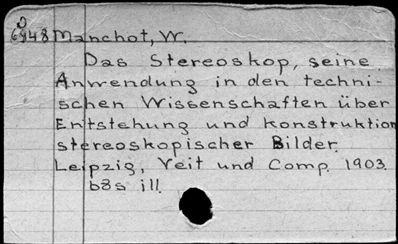 6948 Manchot, W.
Das Stereoskop, seine
Anwendung in den techni-
schen Wissenschaften über
Entstehung und Konstruktion
stereoskopischer Bilder.
Leipzig, Veit und Comp. 1903.
68s ill.